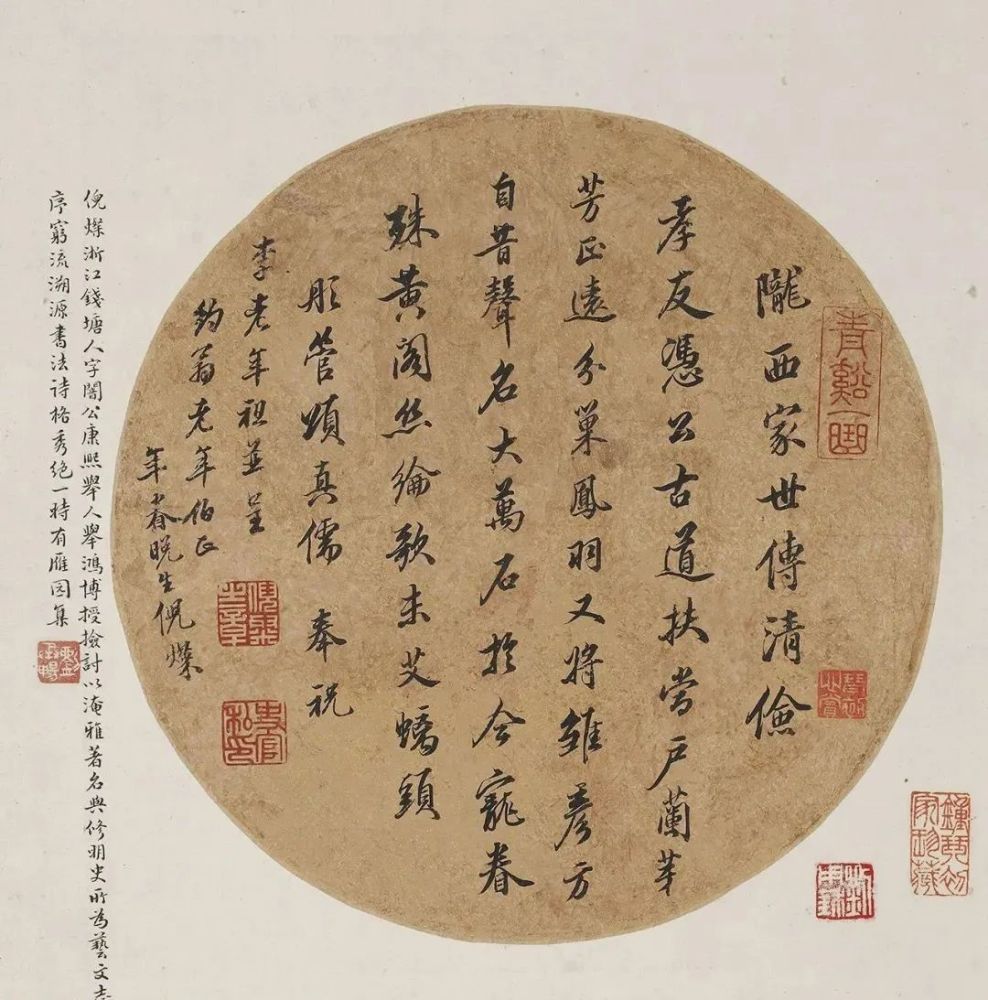 隴西家世傳清儉
孝友憑公古道扶當戶蘭芽
芳正遠分巢鳳羽又將雛彥方
自昔聲名大萬石於今寵眷
殊黃閣絲綸歌未艾螭頭
彤管頌真儒 奉祝
李老年祖並呈
約翁老年伯正
年眷晚生倪燦
倪燦浙江錢塘人字闇公康熙舉人舉鴻博授撿討以淹雅著名與修明史所為藝文志
序窮流溯源書法詩格秀絕一時有雁園集